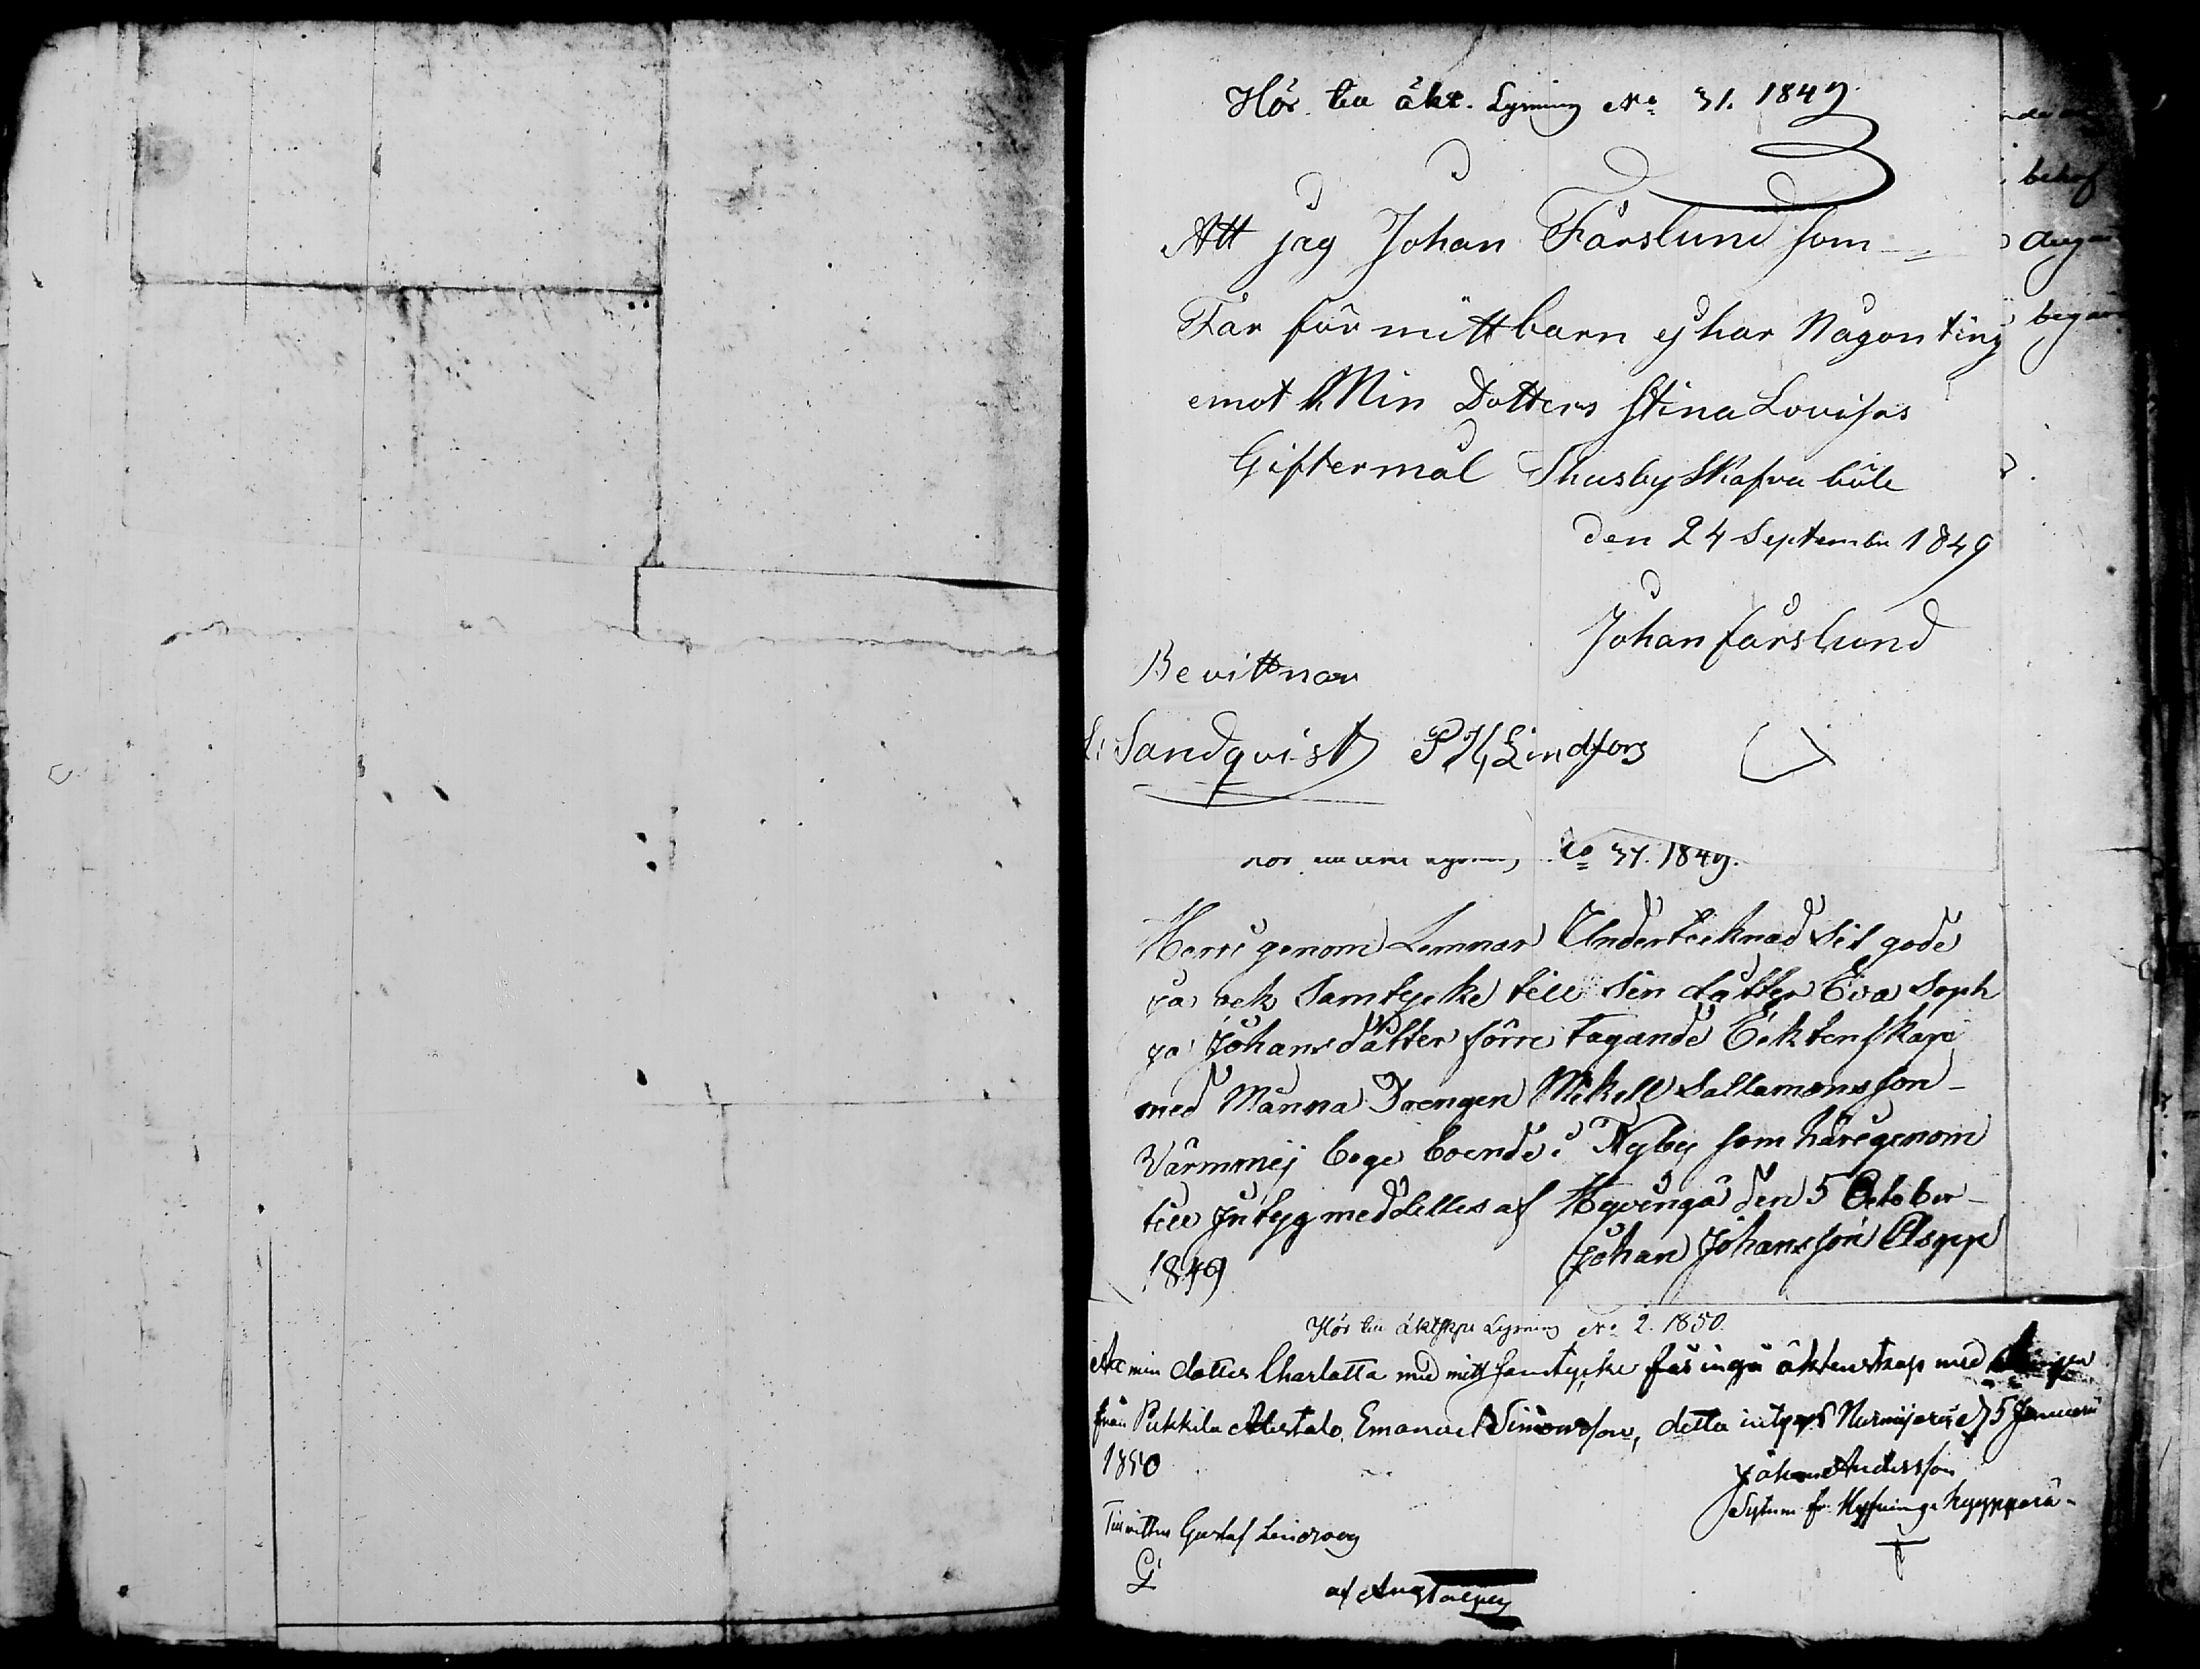 Hör till äkt. Lysning No 31. 1849.
Att jag Johan Fårslund som
Far för mitt barn ej har Någon ting
emot Min Dotters Stina Lovisas
Giftermål Thusby Skafva böle
den 24 September 1849
Johan fårslund
Bevittnar
Sandqvist P H Lindfors
No 37. 1849.
Herri genom Lemnar Undertecknad Sit gode
ja ock Samtycke till Sin dåtter Eva Soph
ja Johansdåtter förre tagande Ecktenskape
med Månna Drengen Mikell Sallamonsson
Värmmej bege boende i Nyby som härigenom
till Intyg meddelles af Hyvinge den 5 October
1849 Johan Johansson Aspp
Hör till äktskps Lysning No 2. 1850.
At min dotter Charlotta med mitt samtycke får ingå äktenskap med
från Pukkila Alastalo, Emanuel Simonsson, detta intygas Nurmijervi d 5 Januari
1850
Johan Andersson
fr. Hyfvinge
Gustaf Lindroos
G
af
nde
behof
Aug
begär